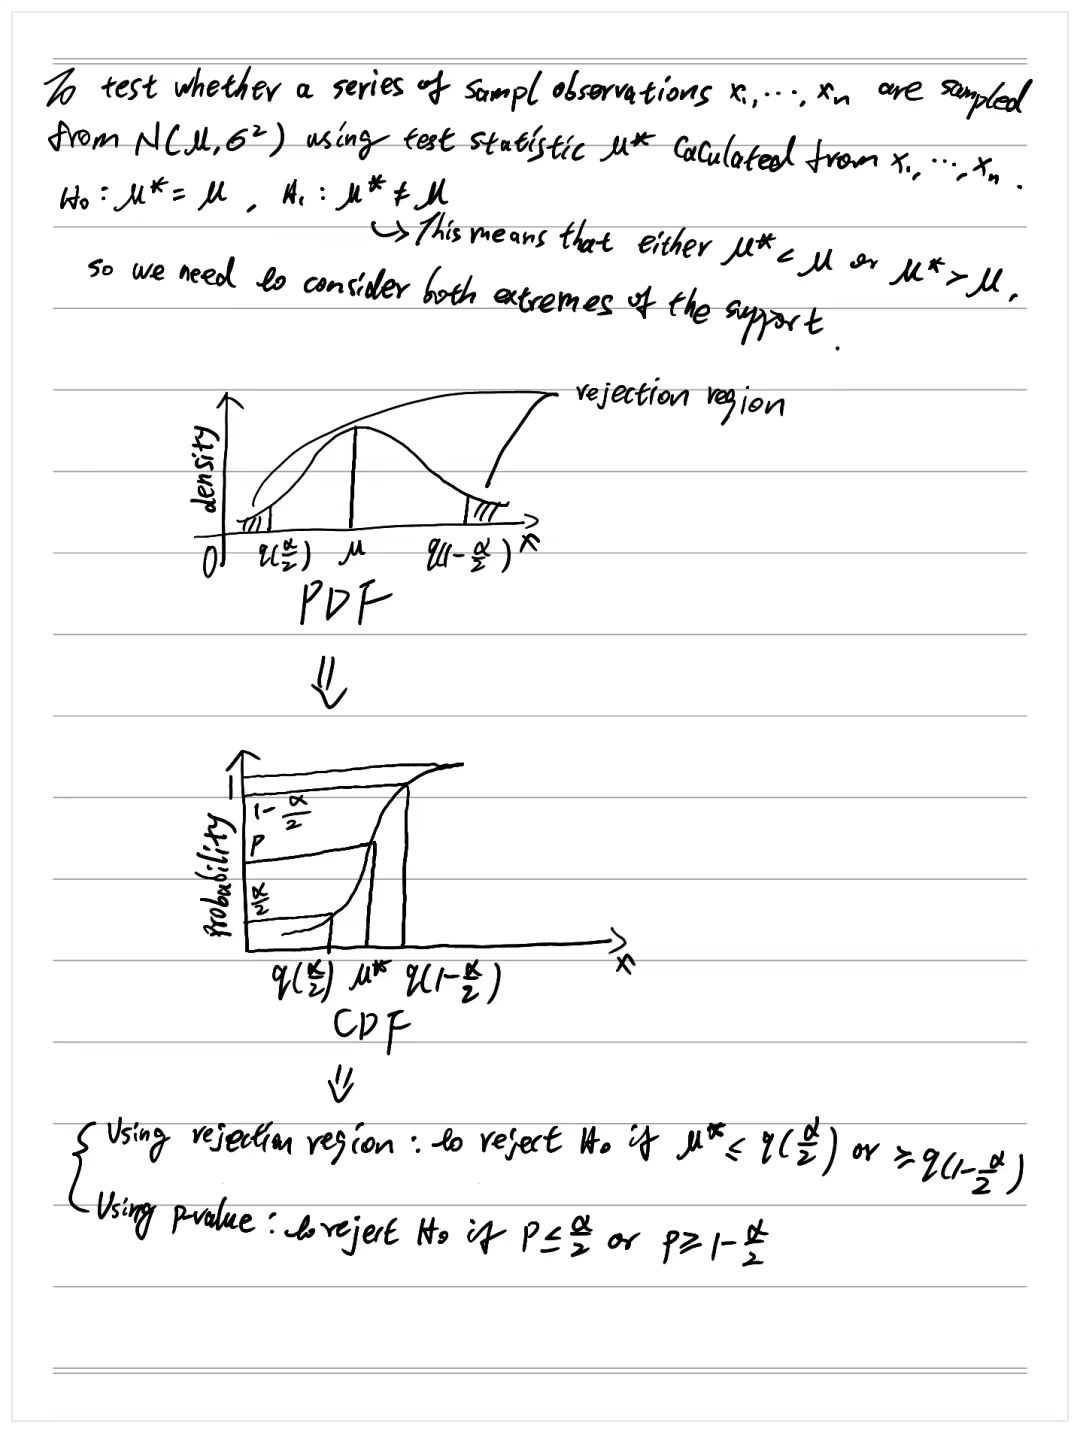 To test whether a series of sampl observations x₁, ⋯, xₙ are sampled
from N(μ, σ²) using test statistic μ* caculated from x₁, ⋯, xₙ.
H₀ : μ* = μ , H₁ : μ* ≠ μ
↳ This means that either μ* < μ or μ* > μ,
so we need to consider both extremes of the support.
rejection region
density
0 q(α/2) μ q(1-α/2) x
PDF
⇓
1
1-α/2
P
probability
α/2
q(α/2) μ* q(1-α/2) x
CDF
⇓
{ Using rejection region : to reject H₀ if μ* ≤ q(α/2) or ≥ q(1-α/2)
Using p-value : to reject H₀ if P ≤ α/2 or P ≥ 1-α/2